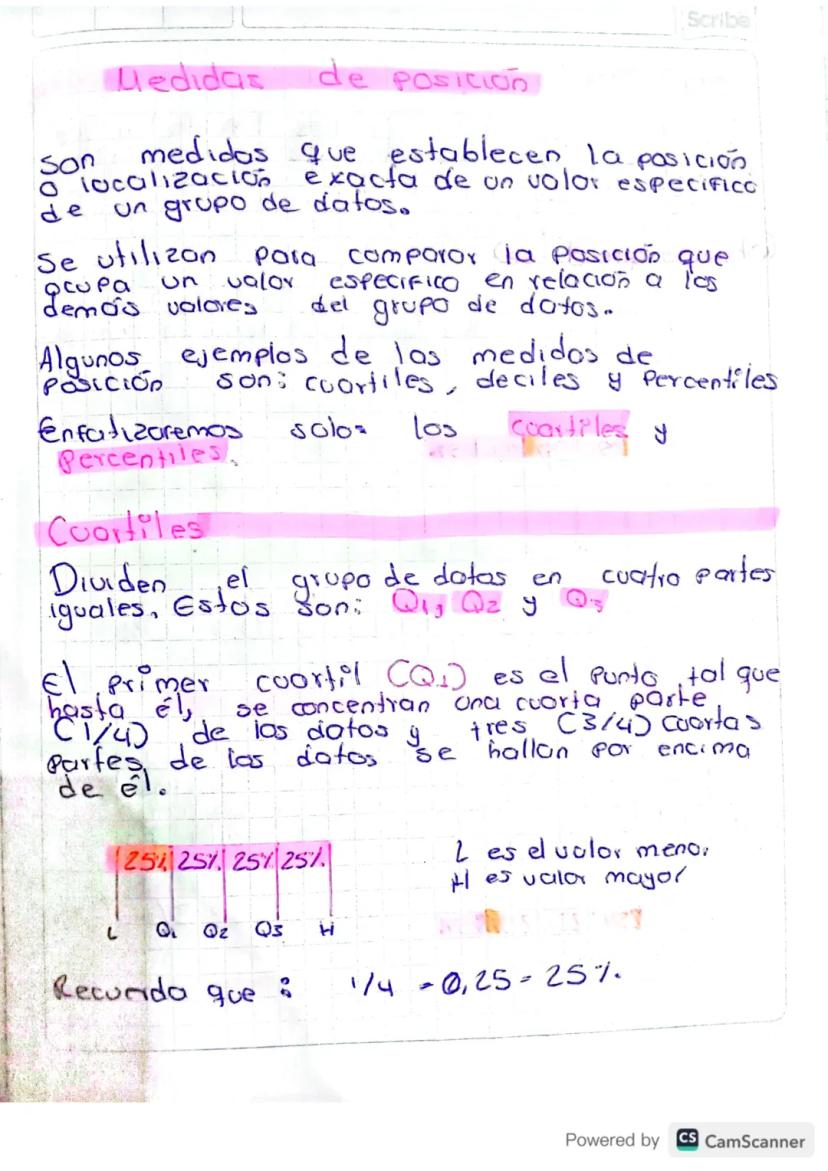 Scribe
Medidas de posición
Son medidas que establecen la posición
o localización exacta de un valor especifico
de un grupo de datos.
Se utilizan para comparar la posición que
ocupa un valor especifico en relación a los
demás valores del grupo de datos.
Algunos ejemplos de las medidas de
posición son: cuartiles, deciles y Percentiles
Enfatizaremos solo: los cuartiles y
Percentiles.
Cuartiles
Dividen el grupo de datos en cuatro partes
iguales. Estos son: Q1, Q2 y Q3
El primer cuartil (Q1) es el punto tal que
hasta él, se concentran una cuarta parte
(1/4) de los datos y tres (3/4) cuartas
partes de los datos se hallan por encima
de él.
25% 25% 25% 25%
L Q1 Q2 Q3 H
L es el valor menor
H es valor mayor
Recuerda que: 1/4 = 0,25 = 25%.
Powered by CS CamScanner